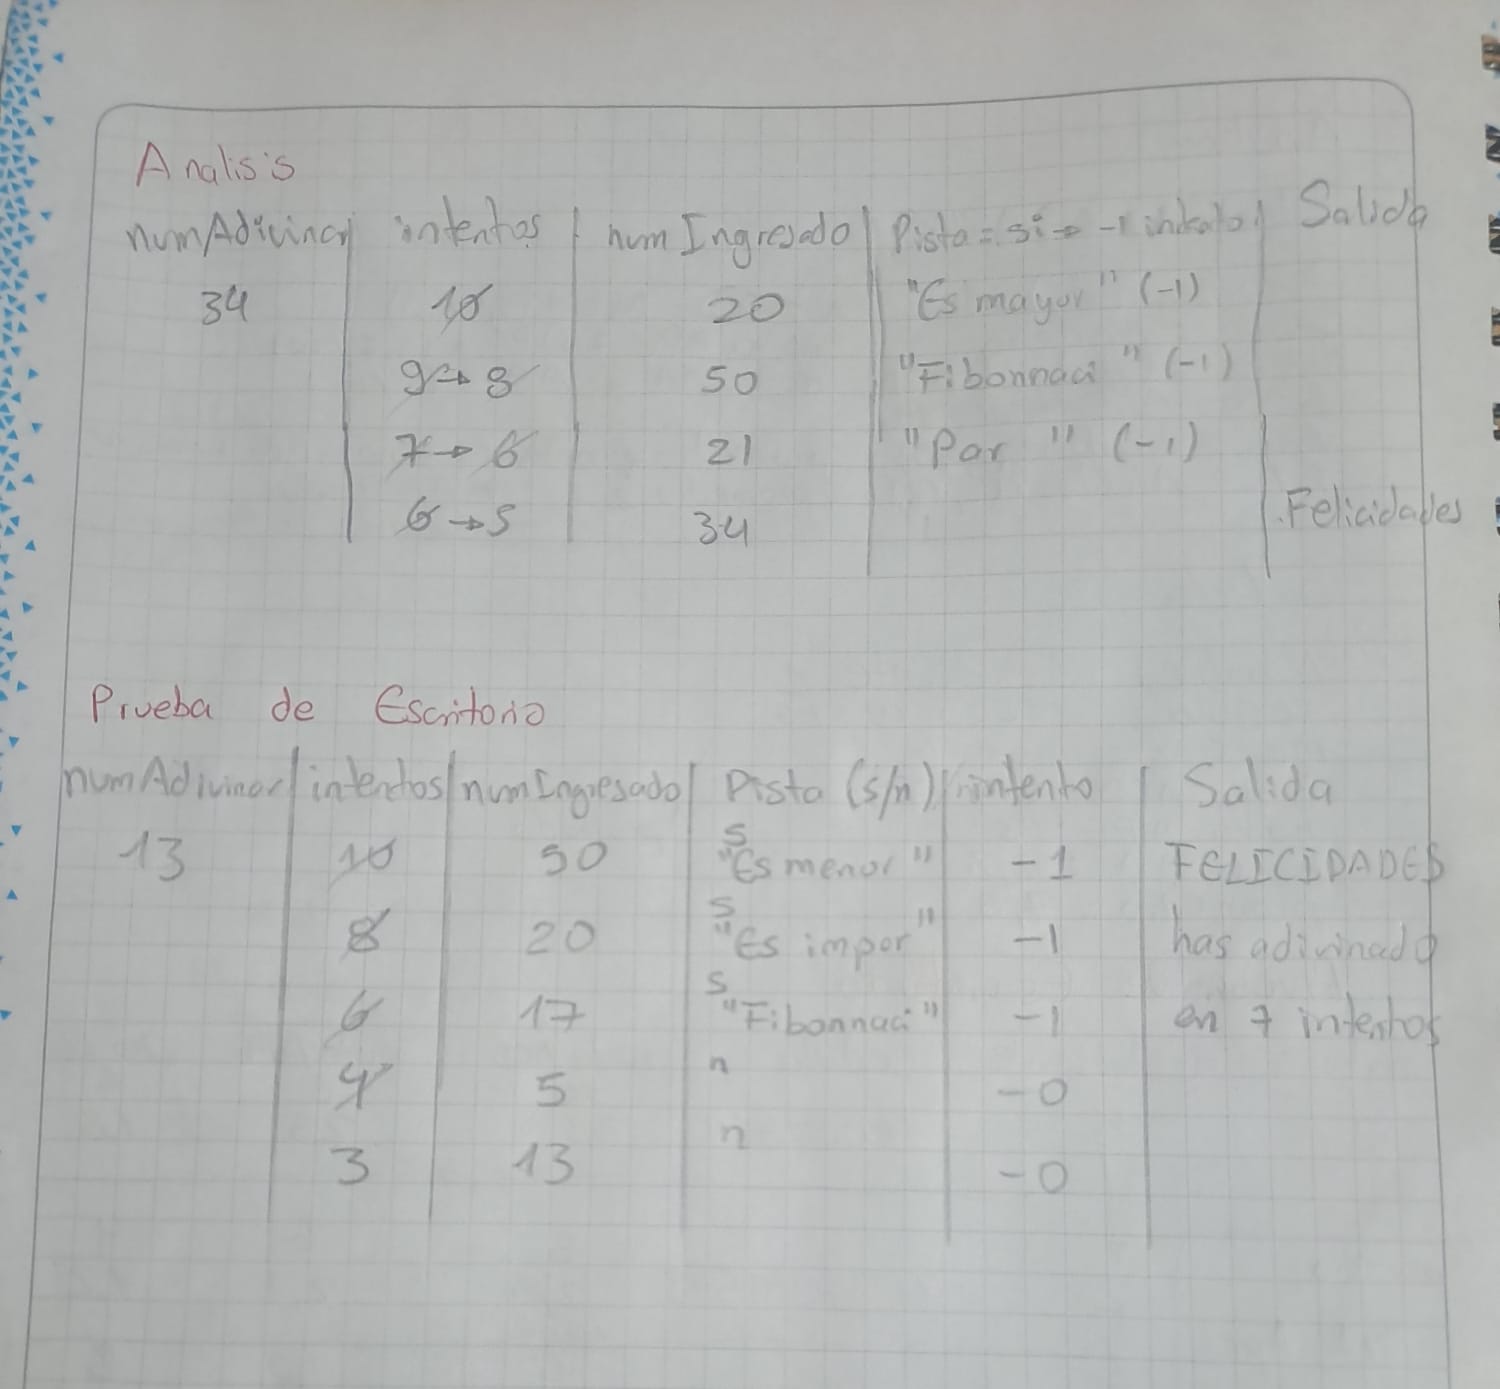 Analisis
numAdivinar | intentos | num Ingresado | Pista = si → -1 intento | Salida
34 10 20 "Es mayor" (-1)
9 → 8 50 "Fibonnaci" (-1)
7 → 6 21 "Par" (-1)
6 → 5 34 Felicidades
Prueba de Escritorio
numAdivinar | intentos | numIngresado | Pista (s/n) | intento | Salida
s
13 10 50 "Es menor" -1 FELICIDADES
s
8 20 "Es impar" -1 has adivinado
s
6 17 "Fibonnaci" -1 en 7 intentos
n
4 5 -0
n
3 13 -0